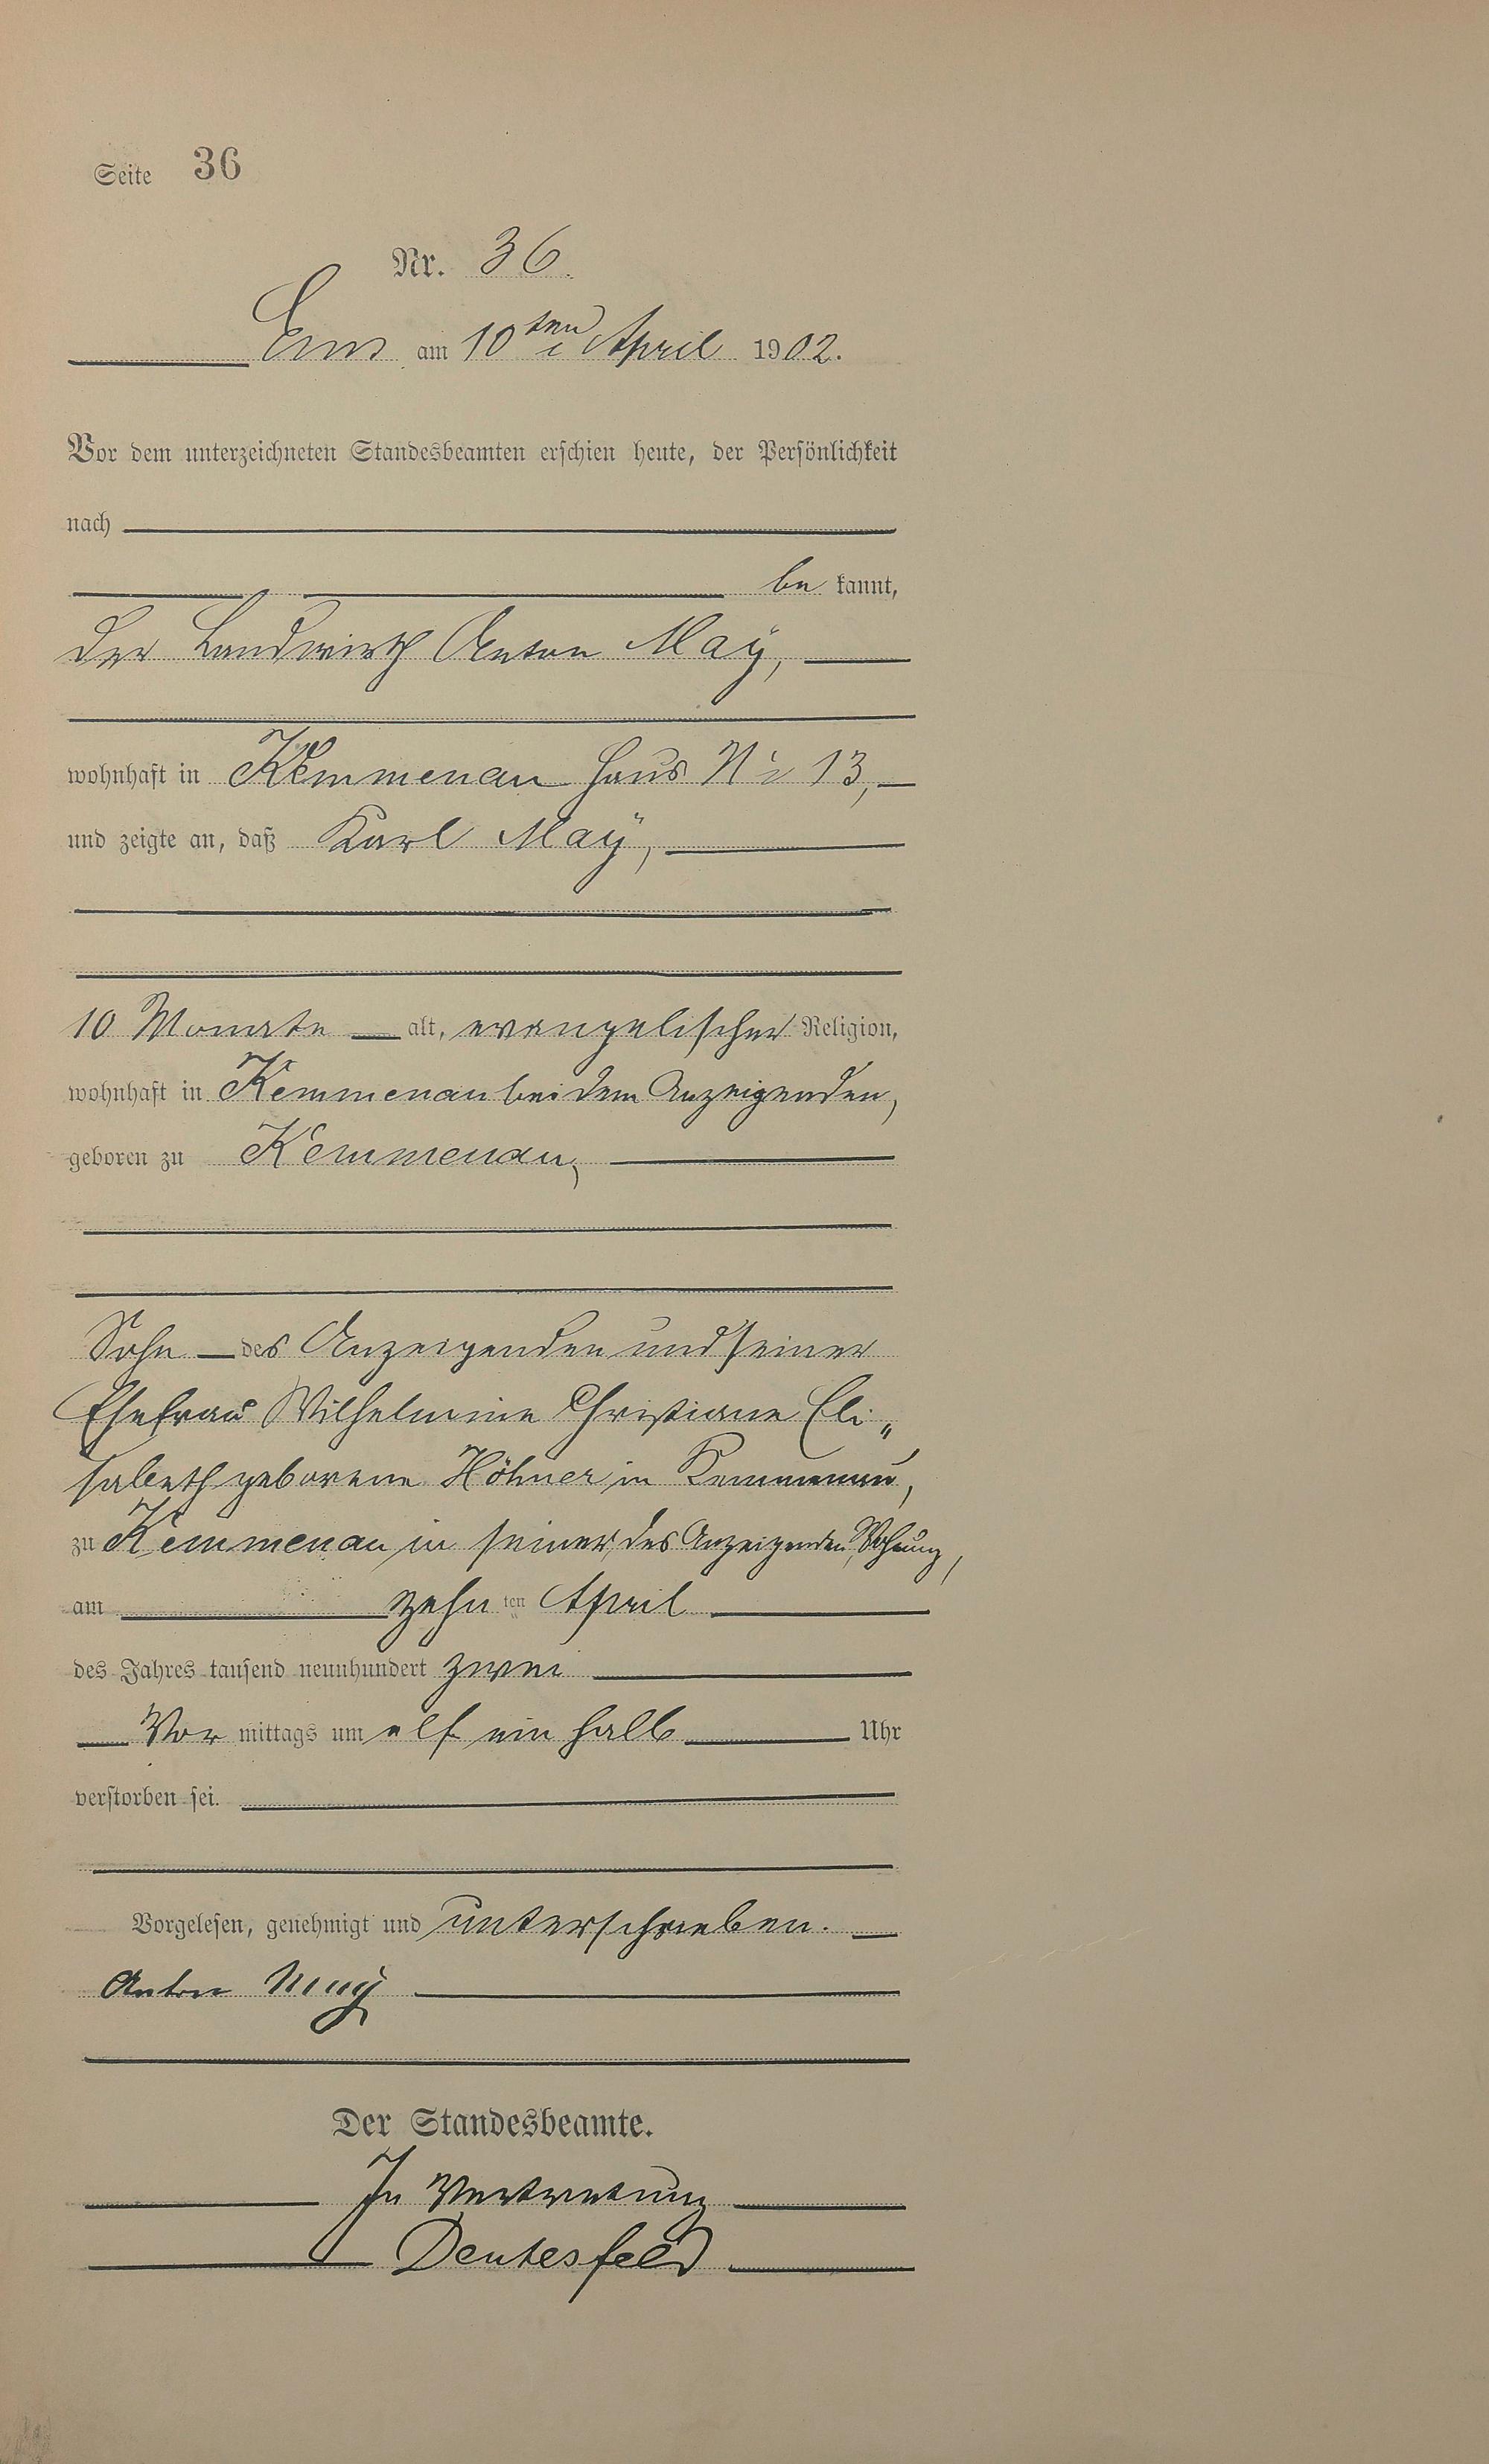 Seite 36
Nr. 36.
Ems am 10ten April 1902.
Vor dem unterzeichneten Standesbeamten erschien heute, der Persönlichkeit
nach
be kannt,
der Landwirth Anton Maÿ,
wohnhaft in Kemmenau Haus Nr 13,
und zeigte an, daß Karl Maÿ,
10 Monate alt, evangelischer Religion,
wohnhaft in Kemmenau bei dem Anzeigenden,
geboren zu Kemmenau,
Sohn des Anzeigenden und seiner
Ehefrau Wilhelmine Christiane Eli„
sabeth geborene Höhner in Kemmenau,
zu Kemmenau in seiner, des Anzeigenden, Wohnung,
am zehn ten April
des Jahres tausend neunhundert zwei
Vor mittags um elf ein halb Uhr
verstorben sei.
Vorgelesen, genehmigt und unterschrieben.
Anton Maÿ
Der Standesbeamte.
In Vertretung
Deutesfeld